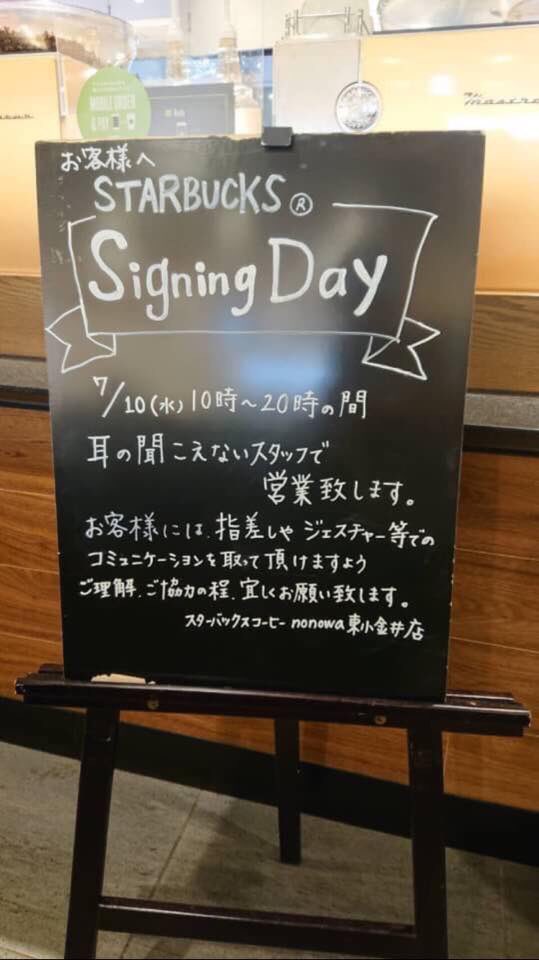 MOBILE ORDER
& PAY
お客様へ
STARBUCKS®
Signing Day
7/10(水)10時〜20時の間
耳の聞こえないスタッフで
営業致します。
お客様には、指差しや ジェスチャー等での
コミュニケーションを取って頂けますよう
ご理解、ご協力の程、宜しくお願い致します。
スターバックスコーヒー nonowa東小金井店